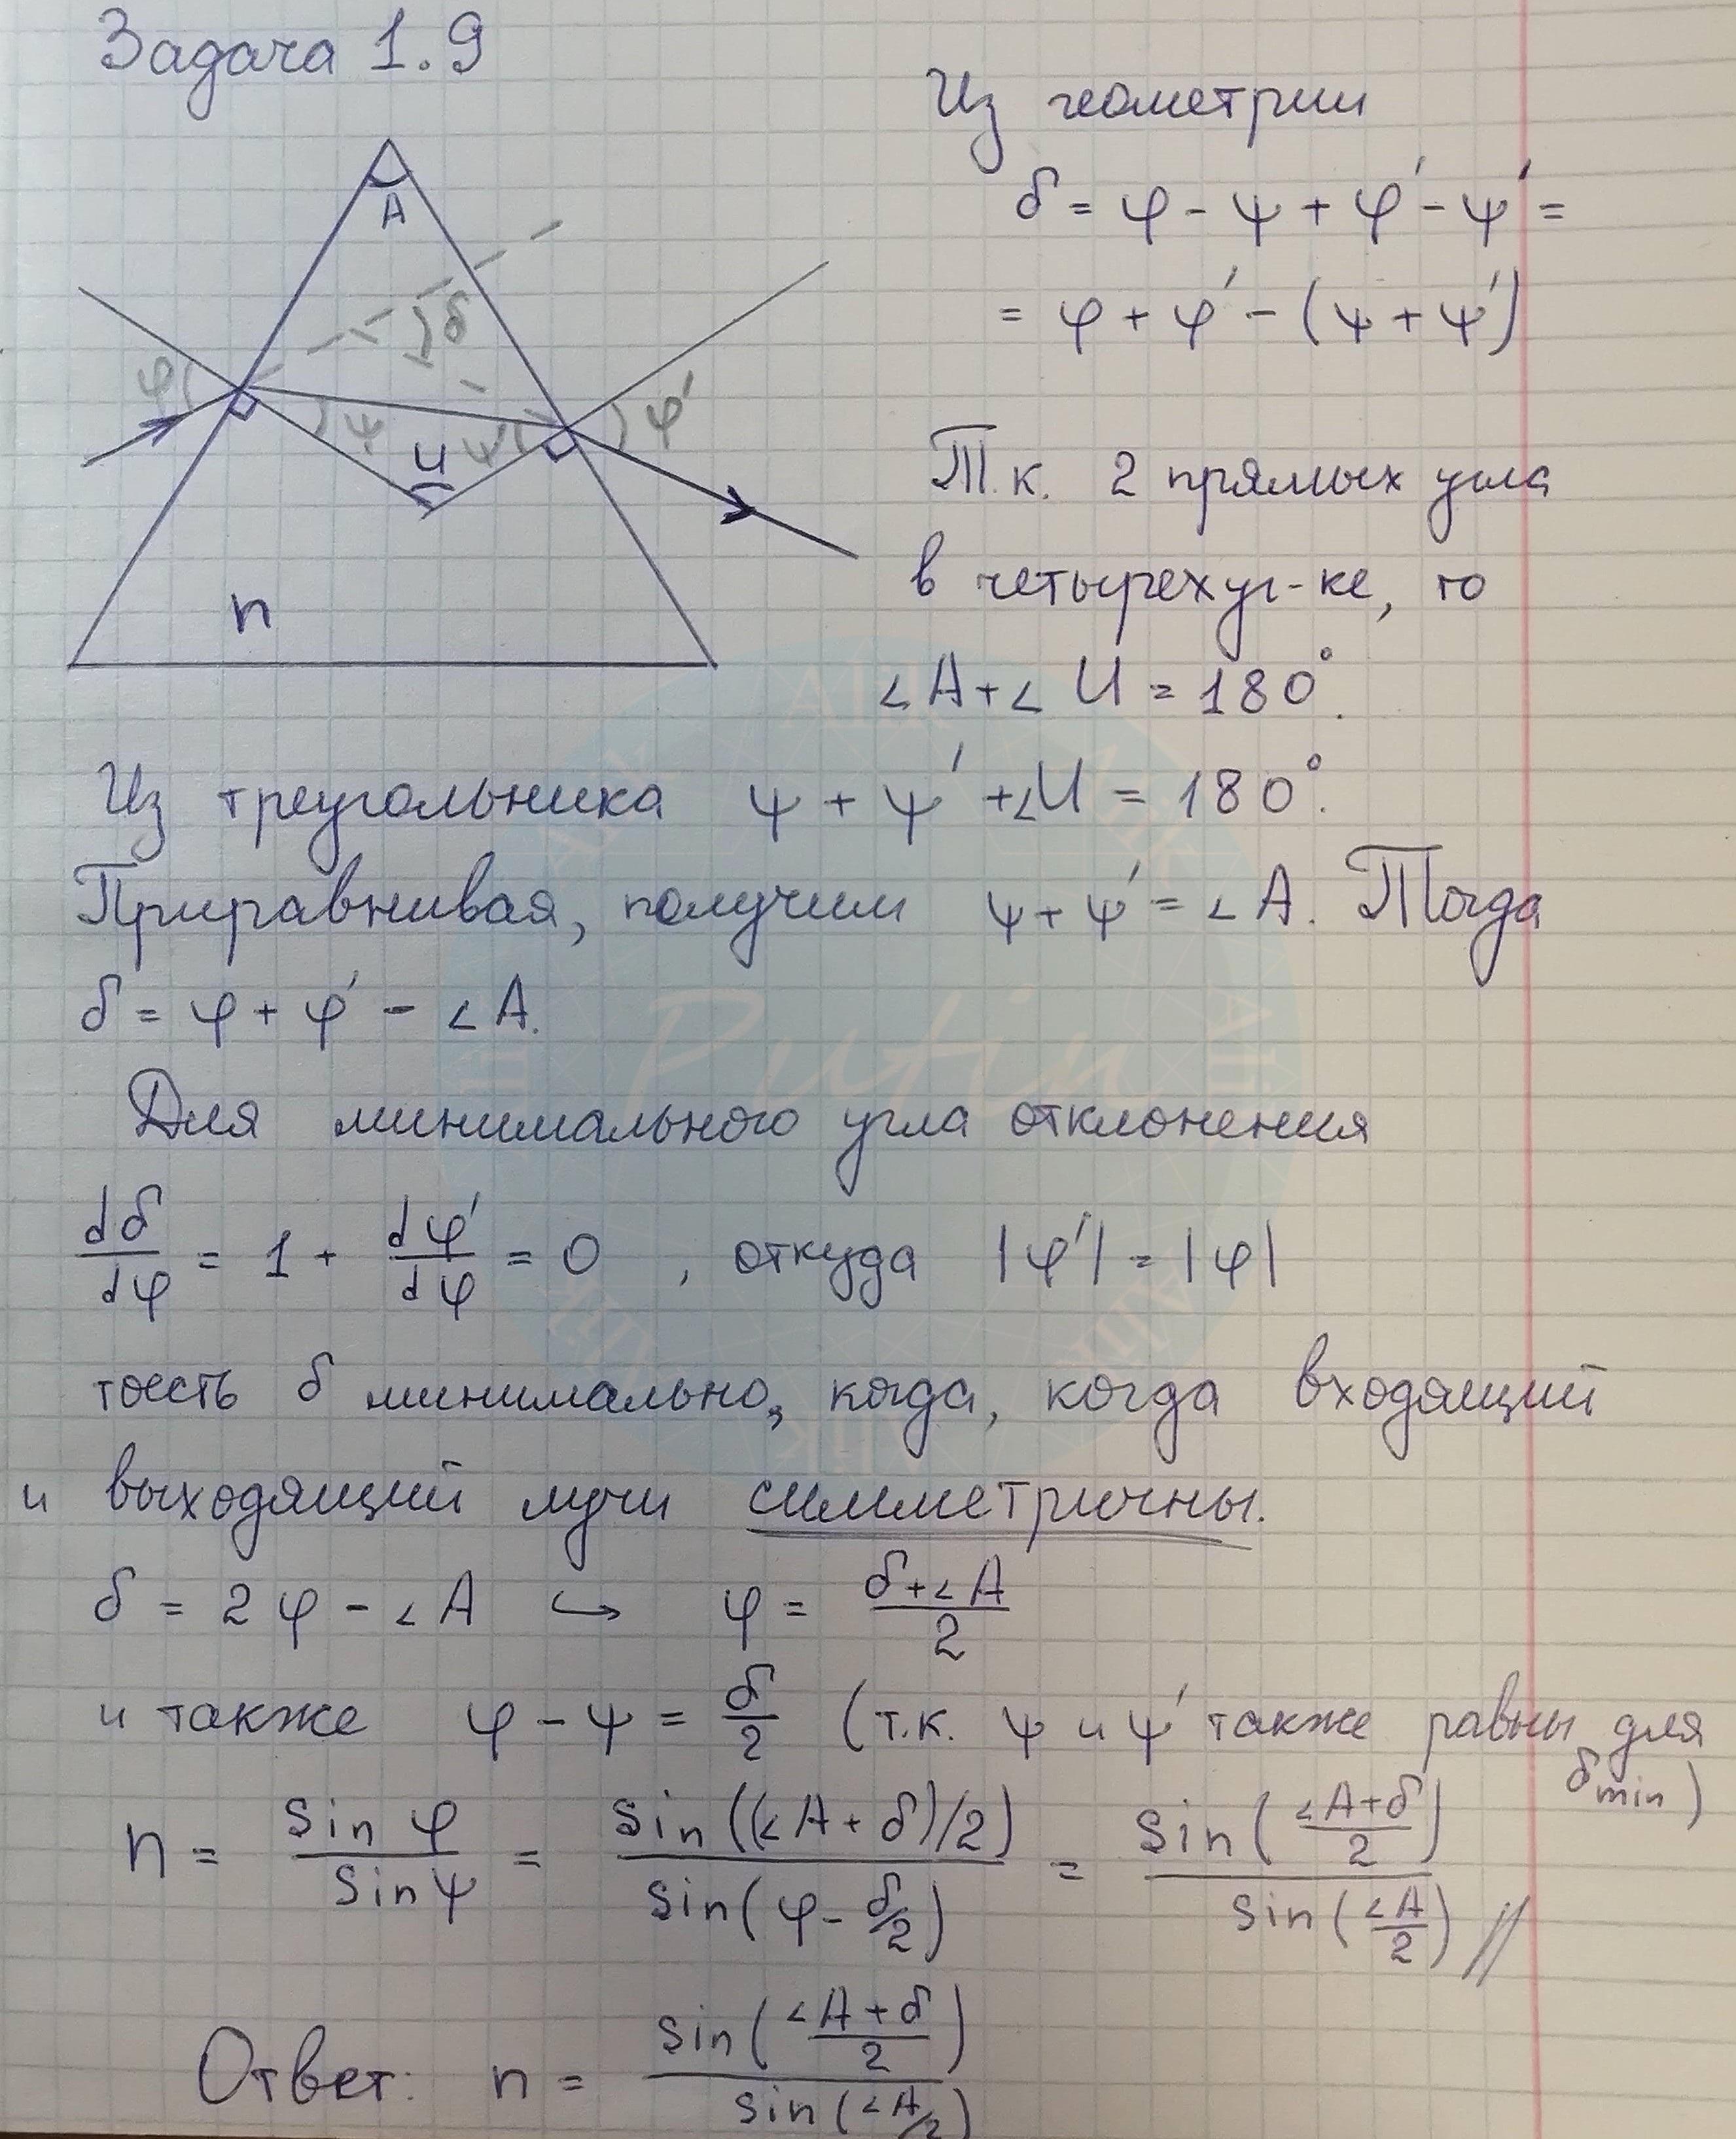 Задача 1.9
Из геометрии
δ = φ - ψ + φ' - ψ' =
= φ + φ' - (ψ + ψ')
A
δ
φ
ψ
ψ'
φ'
U
n
Т.к. 2 прямых угла
в четырехуг-ке, то
∠A + ∠U = 180°.
Из треугольника ψ + ψ' + ∠U = 180°.
Приравнивая, получим ψ + ψ' = ∠A. Тогда
δ = φ + φ' - ∠A.
Для минимального угла отклонения
dδ/dφ = 1 + dφ'/dφ = 0, откуда |φ'| = |φ|
тоесть δ минимально, когда, когда входящий
и выходящий лучи симметричны.
δ = 2φ - ∠A ↪ φ = (δ+∠A)/2
и также φ - ψ = δ/2 (т.к. ψ и ψ' также равны для
δmin)
n = sin φ / sin ψ = sin((∠A + δ)/2) / sin(φ - δ/2) = sin((∠A+δ)/2) / sin(∠A/2) //
Ответ: n = sin((∠A+δ)/2) / sin(∠A/2)
Putin